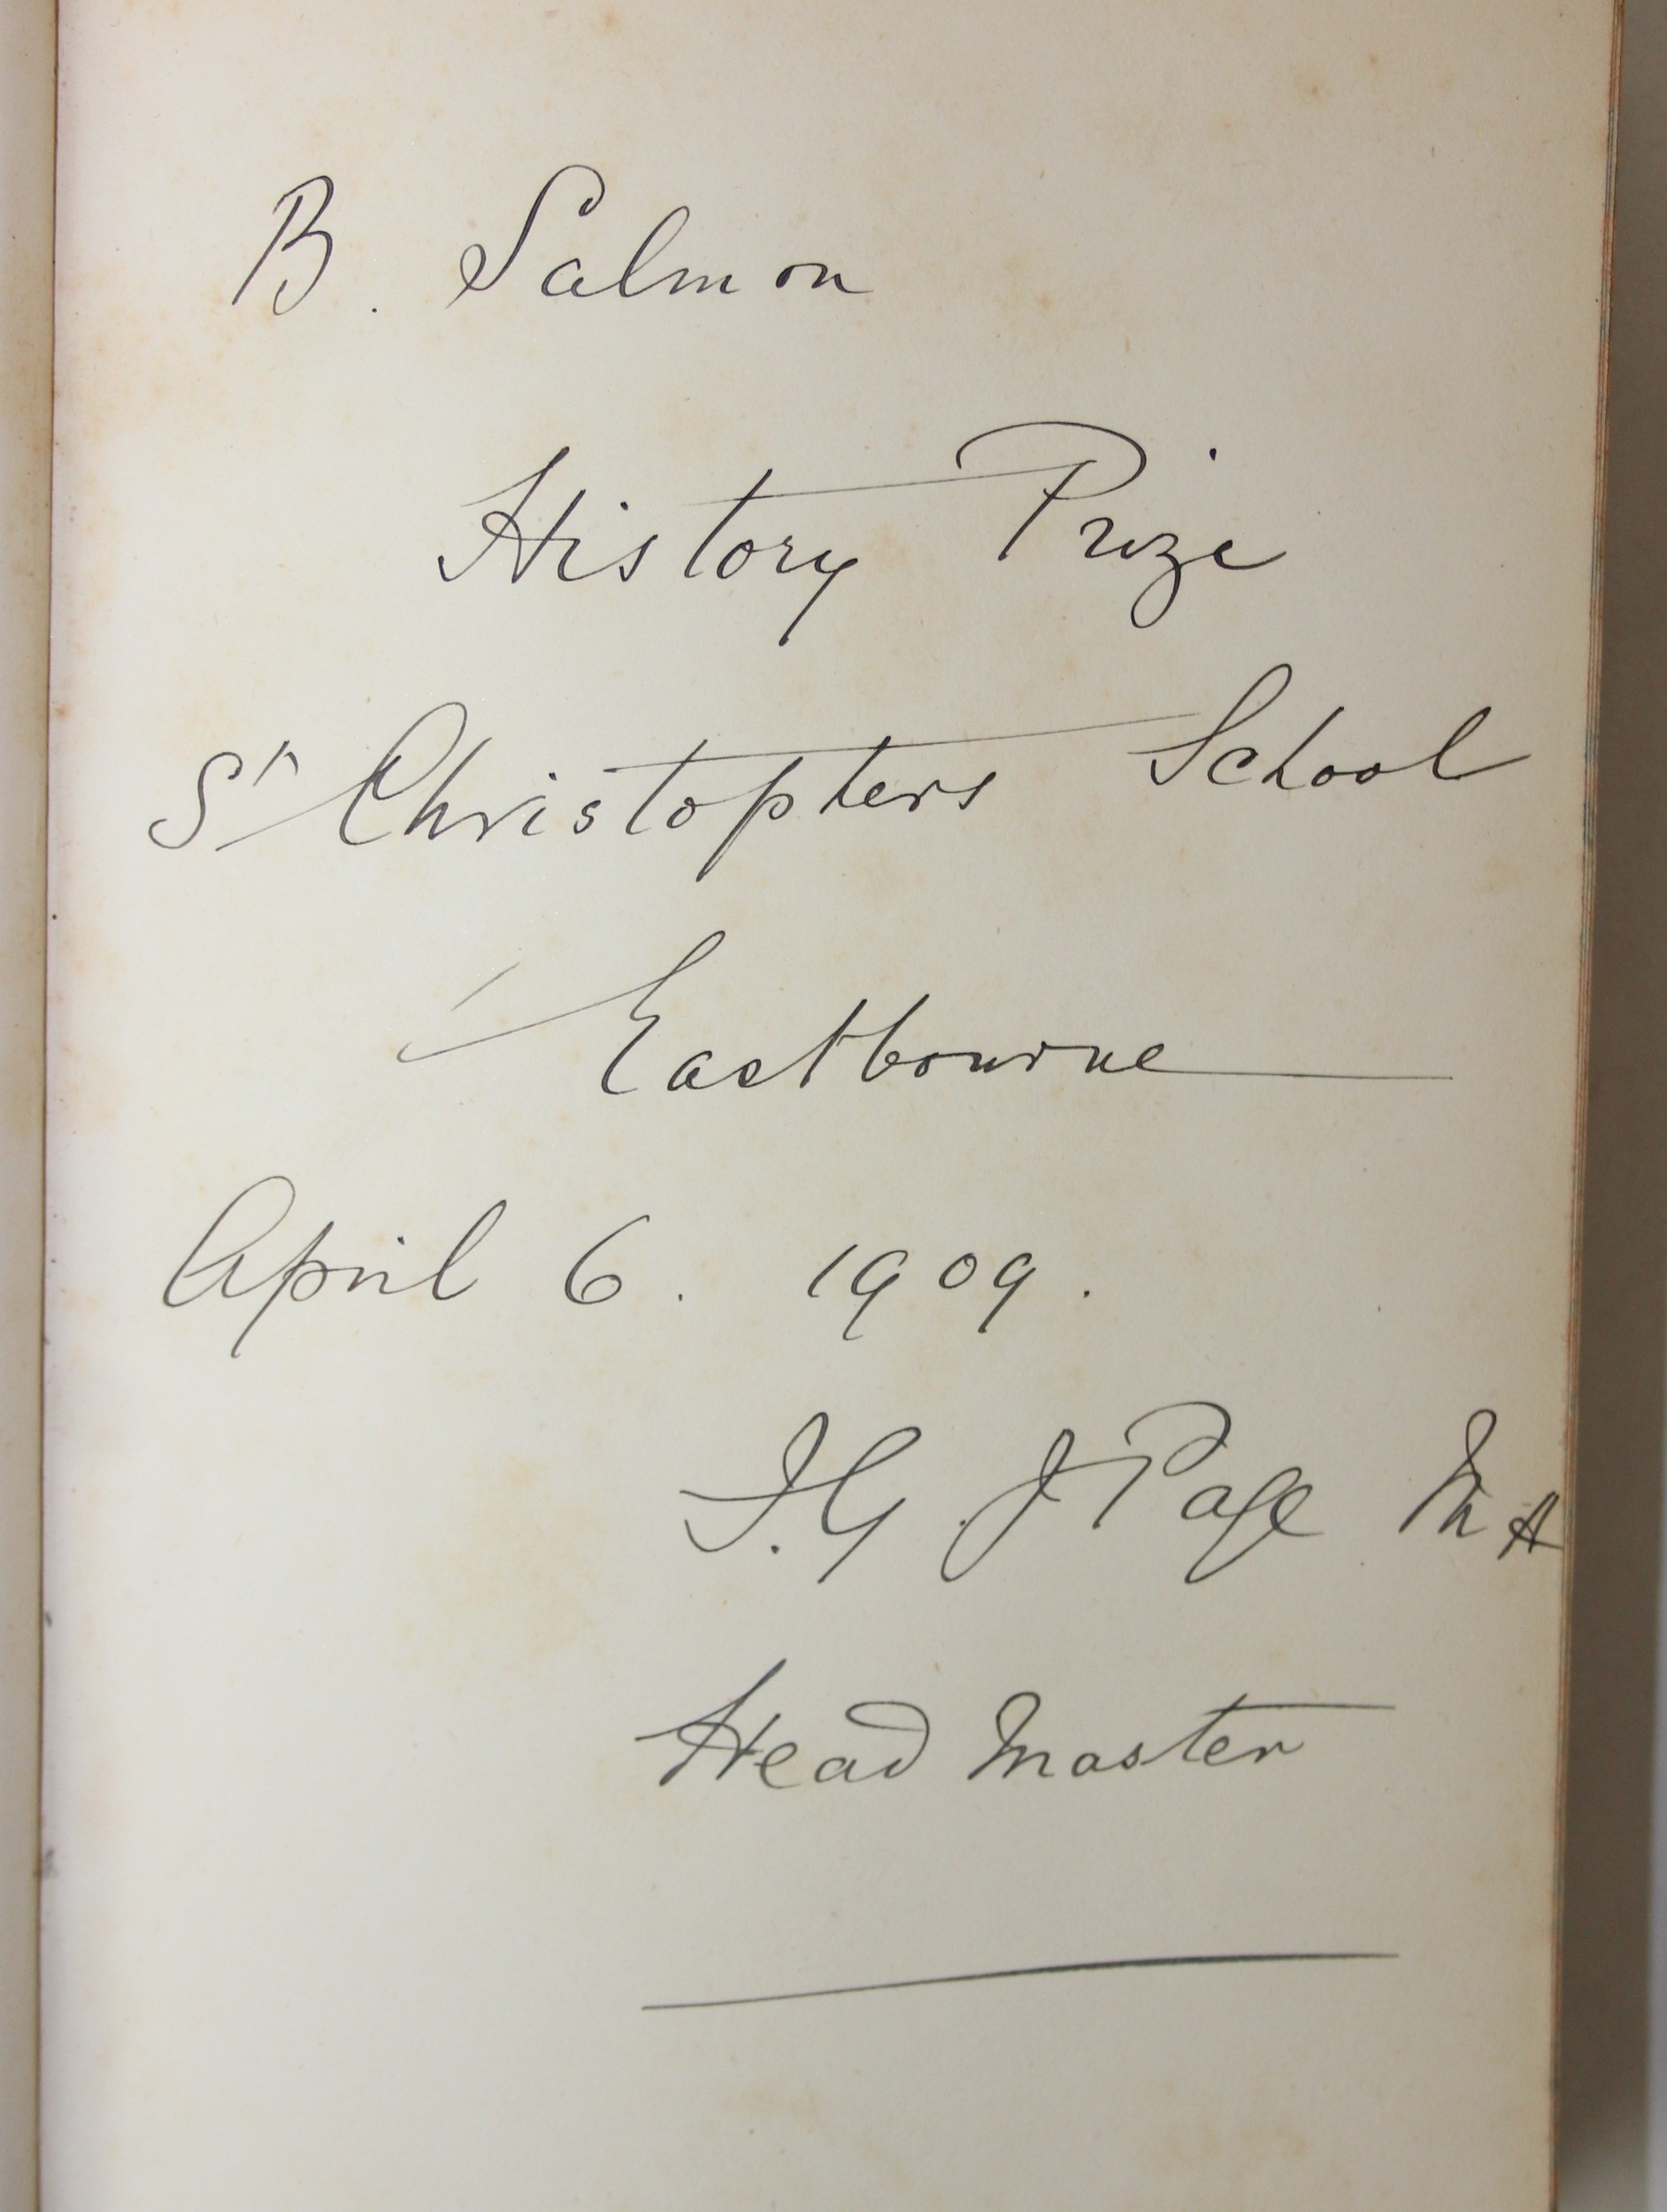 B. Salmon
History Prize
St Christophers School
Eastbourne
April 6. 1909.
J.G.J Page MA
Head Master